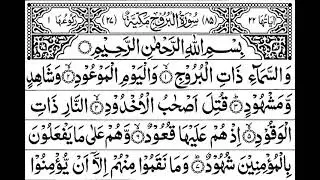 اٰيَاتُهَا ٢٢ (٨٥) سُوْرَةُ الْبُرُوْجِ مَكِّيَّةٌ (٢٧) رُكُوْعُهَا ١
بِسْمِ اللهِ الرَّحْمٰنِ الرَّحِيْمِ
وَالسَّمَآءِ ذَاتِ الْبُرُوْجِ ۙ١ وَالْيَوْمِ الْمَوْعُوْدِ ۙ٢ وَشَاهِدٍ
وَّمَشْهُوْدٍ ؕ٣ قُتِلَ اَصْحٰبُ الْاُخْدُوْدِ ۙ٤ النَّارِ ذَاتِ
الْوَقُوْدِ ۙ٥ اِذْ هُمْ عَلَيْهَا قُعُوْدٌ ۙ٦ وَّهُمْ عَلٰى مَا يَفْعَلُوْنَ
بِالْمُؤْمِنِيْنَ شُهُوْدٌ ؕ٧ وَمَا نَقَمُوْا مِنْهُمْ اِلَّاۤ اَنْ يُّؤْمِنُوْا